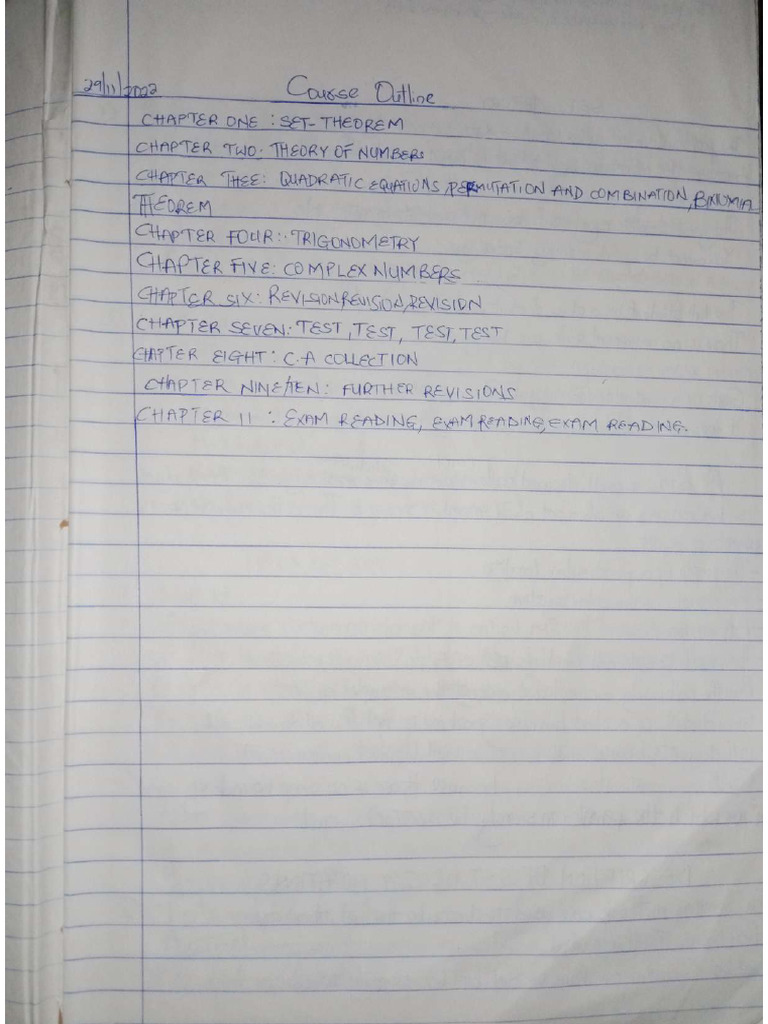 29/11/2022 Course Outline
CHAPTER ONE : SET-THEOREM
CHAPTER TWO: THEORY OF NUMBERS
CHAPTER THEE: QUADRATIC EQUATIONS, PERMUTATION AND COMBINATION, BINOMIA
THEOREM
CHAPTER FOUR:- TRIGONOMETRY
CHAPTER FIVE: COMPLEX NUMBERS
CHAPTER SIX: REVISION, REVISION, REVISION
CHAPTER SEVEN: TEST, TEST, TEST, TEST
CHAPTER EIGHT: C.A COLLECTION
CHAPTER NINE/TEN: FURTHER REVISIONS
CHAPTER 11 : EXAM READING, EXAM READING, EXAM READING.